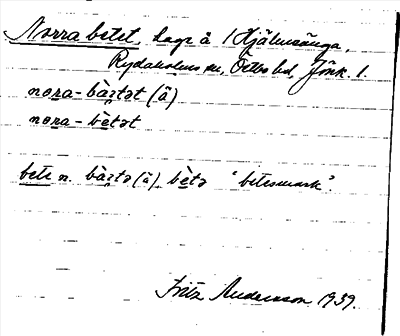 Norra betet, hage å 1 Hjälmsänga,
Rydaholms sn, Östbo hd, Jönk. l.
nora-bàe̯tət (ä)
nora-bètət
bete n. bàe̯tə (ä) bètə "betesmark".
Fritz Anderson 1939.